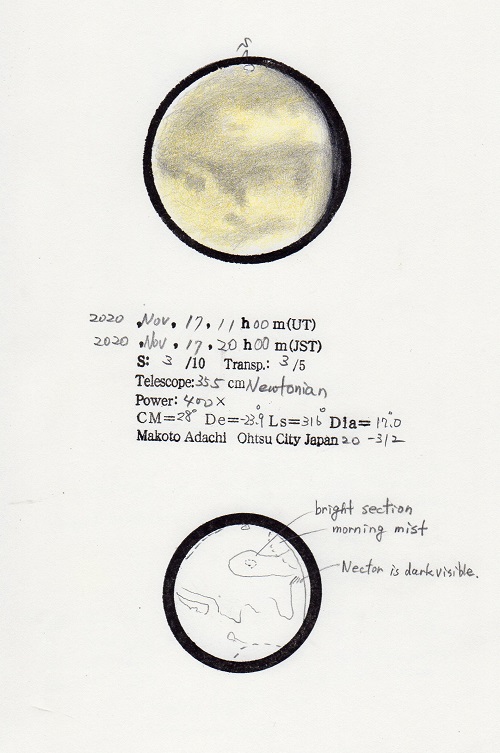 S
2020 .Nov. 17. 11 h00 m(UT)
2020 .Nov. 17. 20 h00 m(JST)
S: 3 /10 Transp.: 3 /5
Telescope:355 cm Newtonian
Power: 400×
CM=28° De=-23.9° Ls=316° Dia=17.0"
Makoto Adachi Ohtsu City Japan 20 -312
bright section
morning mist
Nector is dark visible.